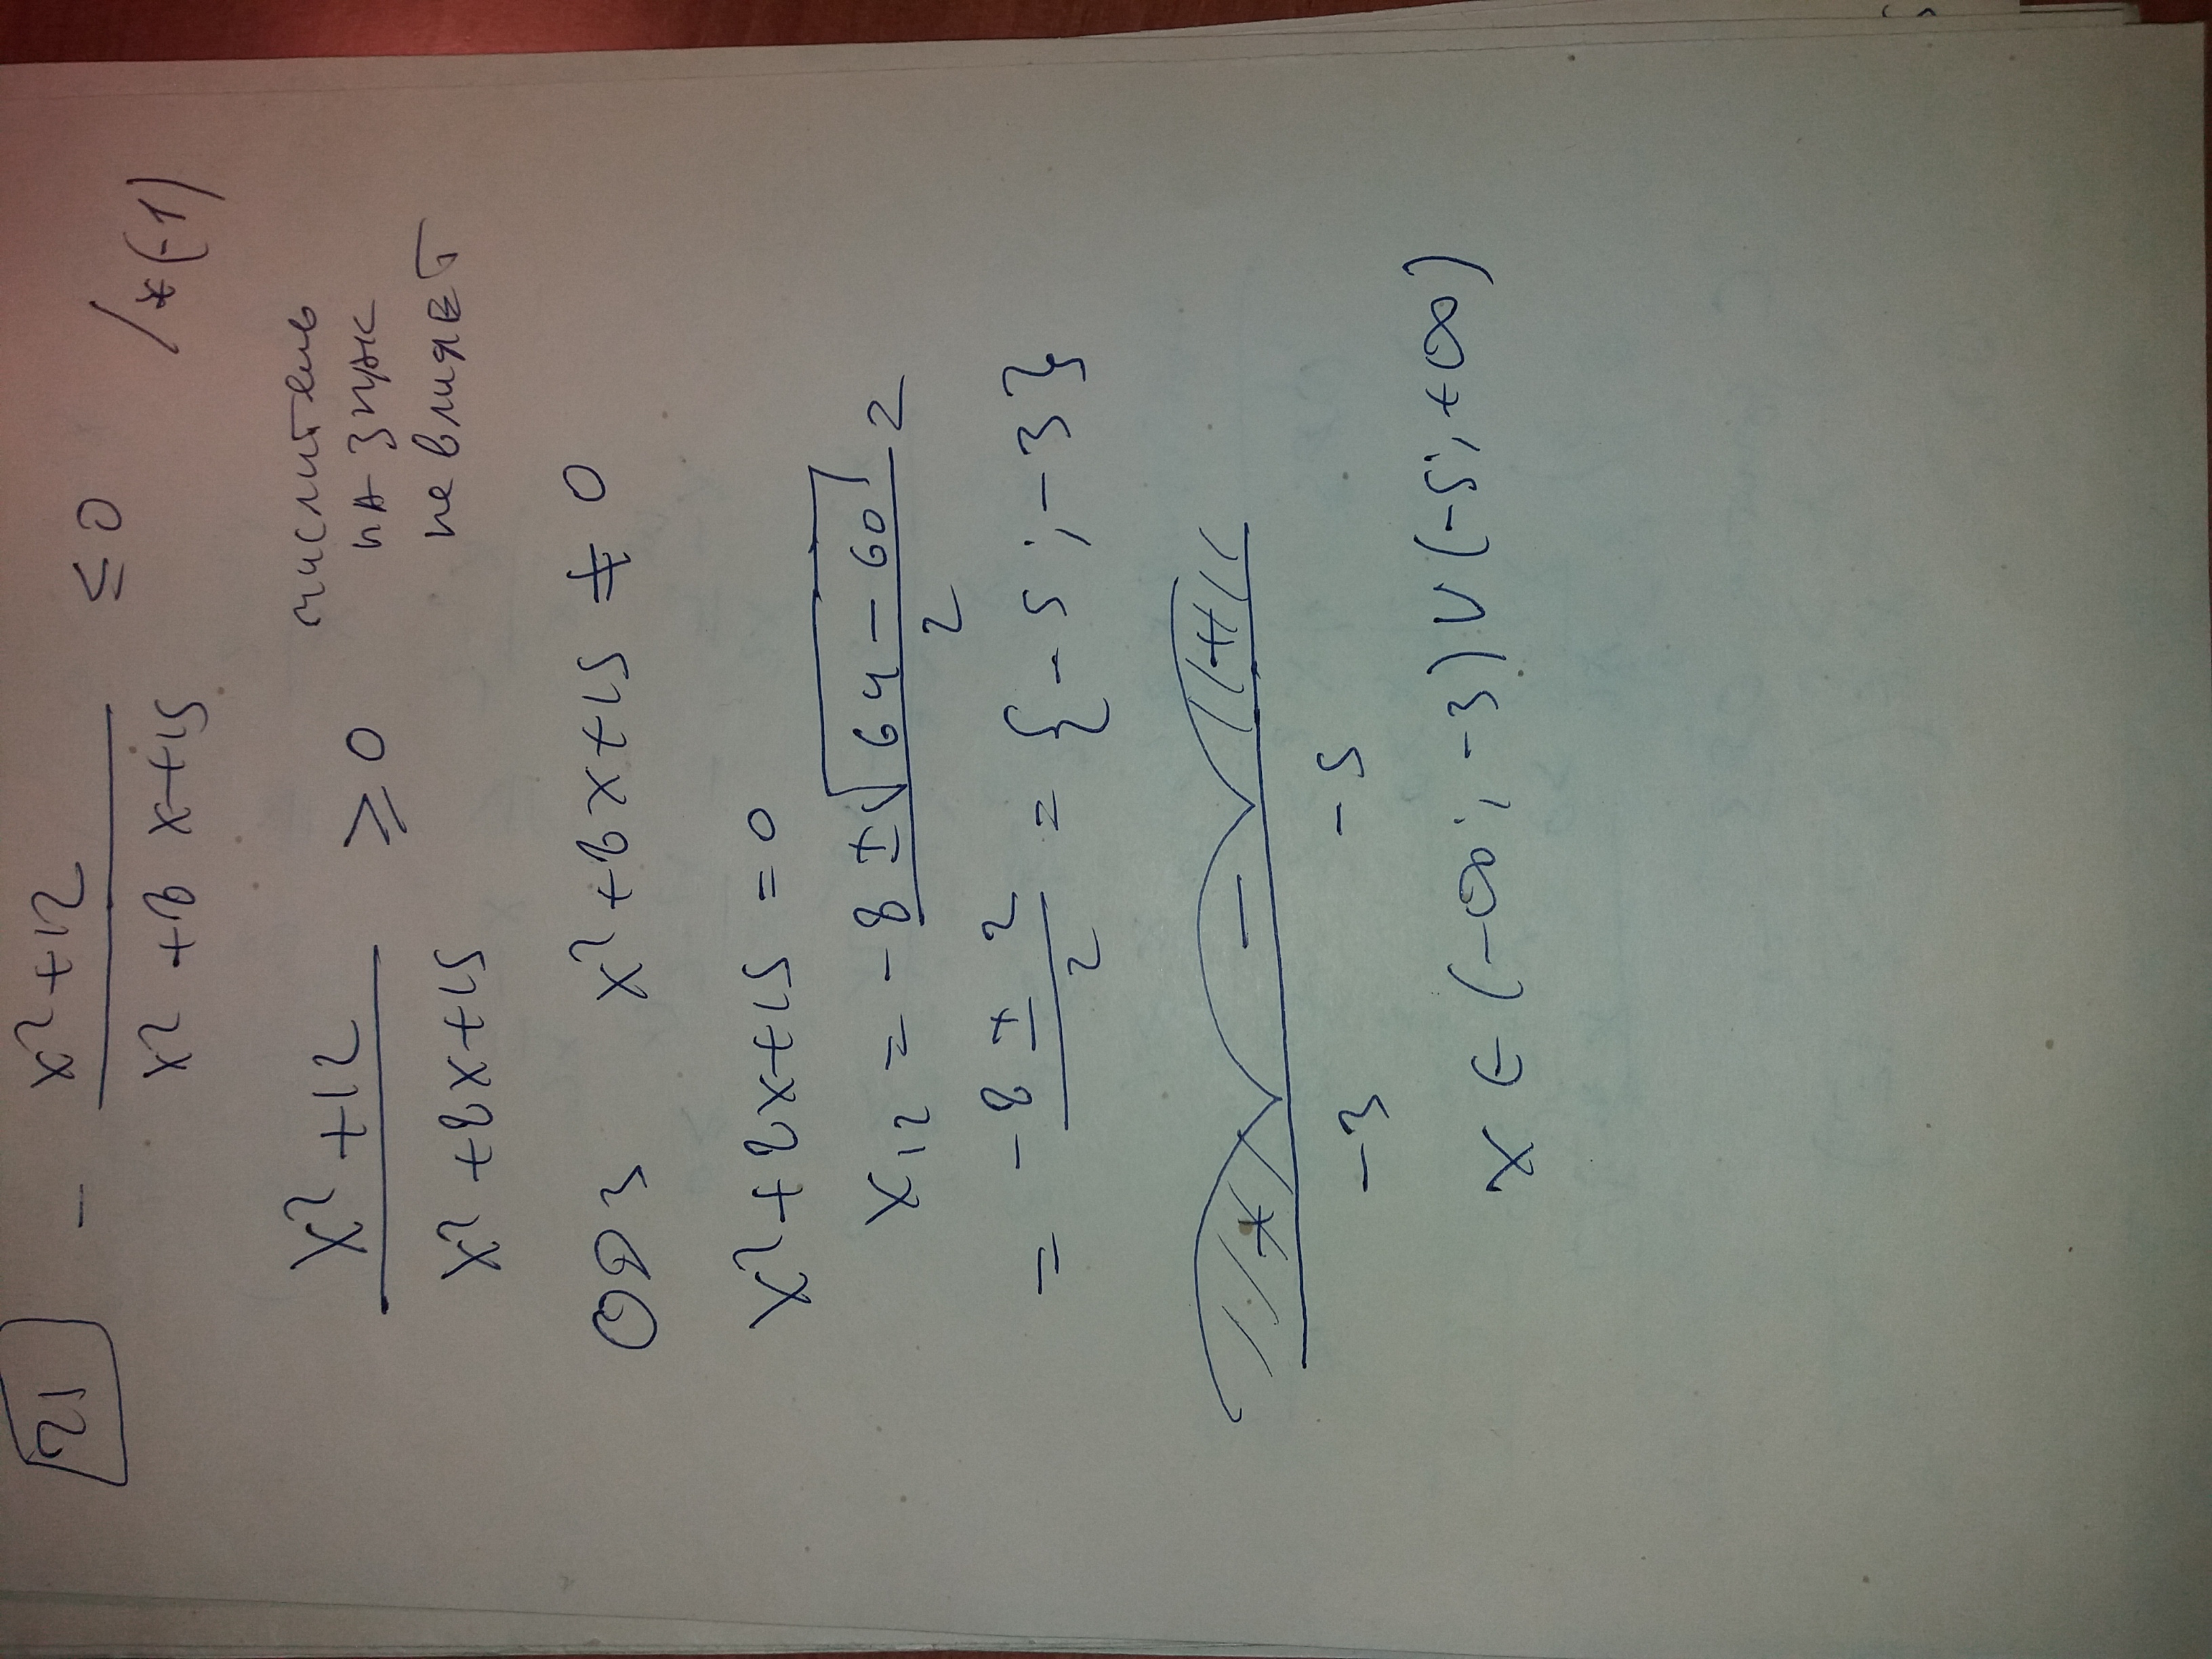 21 - (x² + 12)/(x² + 8x + 15) ≤ 0 /*(-1)
(x² + 12)/(x² + 8x + 15) ≥ 0 числитель на знак не влияет
ОДЗ x² + 8x + 15 ≠ 0
x² + 8x + 15 = 0
x12 = (-8 ± √(64 - 60))/2 2
= (-8 ± 2)/2 = {-5 ; -3}
+ - +
-3 -5
x ∈ (-∞; -3) ∪ (-5; +∞)